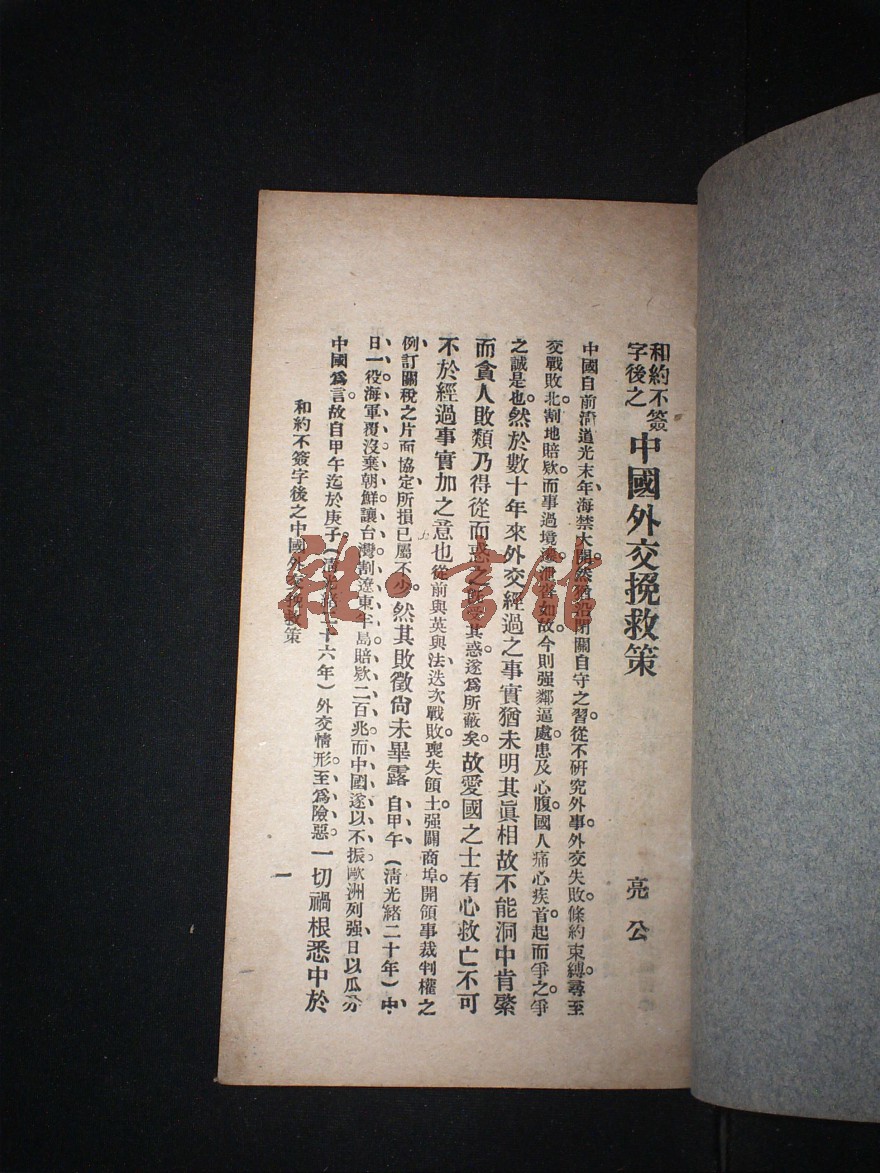 和約不簽字後之中國外交挽救策
亮公
中國自前清道光末年海禁大開然猶沿閉關自守之習。從不研究外事。外交失敗。條約束縛。尋至
交戰敗北。割地賠欵。而事過境遷。泄沓如故。今則强鄰逼處。患及心腹。國人痛心疾首。起而爭之。爭
之誠是也。然於數十年來外交經過之事實猶未明其眞相故不能洞中肯綮
而貪人敗類乃得從而惑之所受其惑。遂爲所蔽矣。故愛國之士有心救亡不可
不於經過事實加之意也從前與英與法、迭次戰敗。喪失領土。强闢商埠。開領事裁判權之
例、訂關稅之片面協定、所損已屬不少。然其敗徵尙未畢露自甲午、(清光緒二十年)中、
日一役海軍覆沒棄朝鮮讓台灣割遼東半島賠欵二百兆而中國遂以不振。歐洲列强、日以瓜分
中國爲言。故自甲午迄於庚子。(清光緒二十六年)外交情形。至爲險惡。一切禍根悉中於
和約不簽字後之中國外交挽救策
一
雜·書信